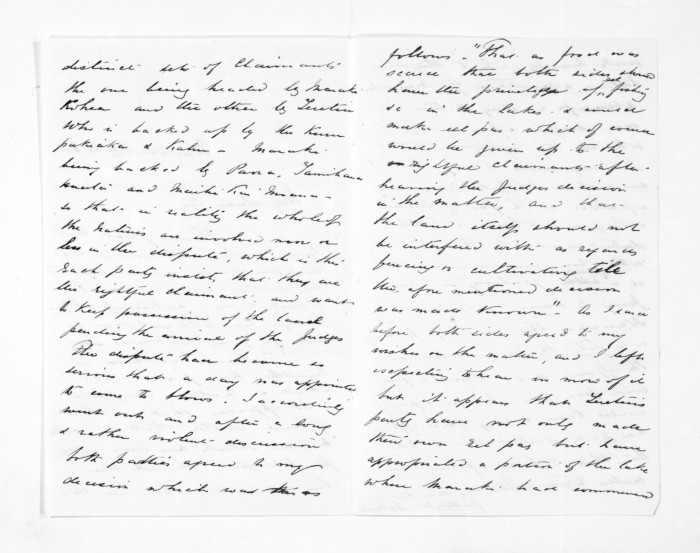 distinct sets of Claimants
the one being headed by Maraki
Kohea and the other by
who is backed up by the Kuru
pakaika & Kahu – Maraki
being backed by Parra, Tamihana
and Maihi
so that in reality the whole of
the natives are involved more or
less in the dispute, which is this
Each party insist, that they are
the rightful claimant, and want
to keep possession of the land
pending the arrival of the Judges
The dispute had become so
serious that a day was appointed
to come to blows. I accordingly
went out and after a long
& rather violent discussion
both parties agreed to my
decision which was as
follows. "That as food was
scarce that both sides should
have the privilege of eel fishing
&c in the lakes & could
make eel pas which of course
would be given up to the
rightful claimants after
hearing the Judges decision
in the matter, and that
the land itself should not
be interfered with as regards
fencing or cultivating till
the afore mentioned decision
was made known". As I said
before both sides agreed to my
wishes on the matter, and I left
expecting to hear no more of it
but it appears that
party have not only made
their own Eel pas but have
appropriated a portion of the lake
where Maraki had commenced